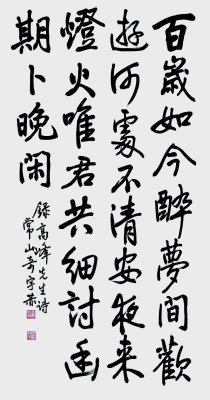 百歲如今醉夢間歡
遊何處不清安夜来
燈火唯君共細討幽
期卜晚閑
錄高峰先生詩
常山